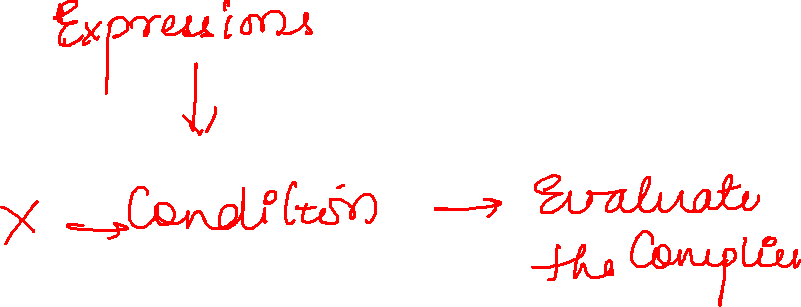 Expressions
X → Condition → Evaluate
the Complier